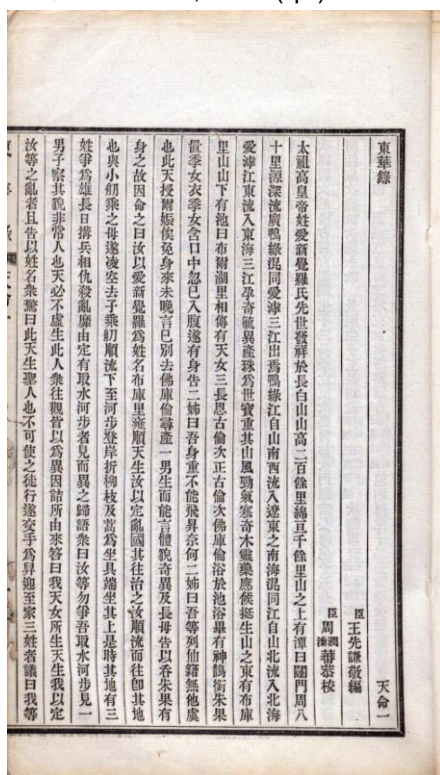 東華錄　天命一
臣王先謙敬編
臣周潤蕃周瀹蕃恭校
太祖高皇帝姓愛新覺羅氏先世發祥於長白山山高二百餘里綿亘千餘里山之上有潭曰闥門周八
十里源深流廣鴨綠混同愛滹三江出焉鴨綠江自山南西流入遼東之南海混同江自山北流入北海
愛滹江東流入東海三江孕奇毓異產珠爲世寶重其山風勁氣寒奇木靈藥應候挺生山之東有布庫
里山山下有池曰布爾湖里相傳有天女三長恩古倫次正古倫次佛庫倫浴於池浴畢有神鵲銜朱果
置季女衣季女含口中忽已入腹遂有身告二姊曰吾身重不能飛昇奈何二姊曰吾等列仙籍無他虞
也此天授爾娠俟免身來未晚言已別去佛庫倫尋產一男生而能言體貌奇異及長母告以吞朱果有
身之故因命之曰汝以愛新覺羅爲姓名布庫里雍順天生汝以定亂國其往治之汝順流而往卽其地
也與小舠乘之母遂凌空去子乘舠順流下至河步登岸折柳枝及蒿爲坐具端坐其上是時其地有三
姓爭爲雄長日搆兵相仇殺亂靡由定有取水河步者見而異之歸語衆曰汝等勿爭吾取水河步見一
男子察其貌非常人也天必不虛生此人衆往觀皆以爲異因詰所由來答曰我天女所生天生我以定
汝等之亂者且告以姓名衆驚曰此天生聖人也不可使之徒行遂交手爲舁迎至家三姓者議曰我等